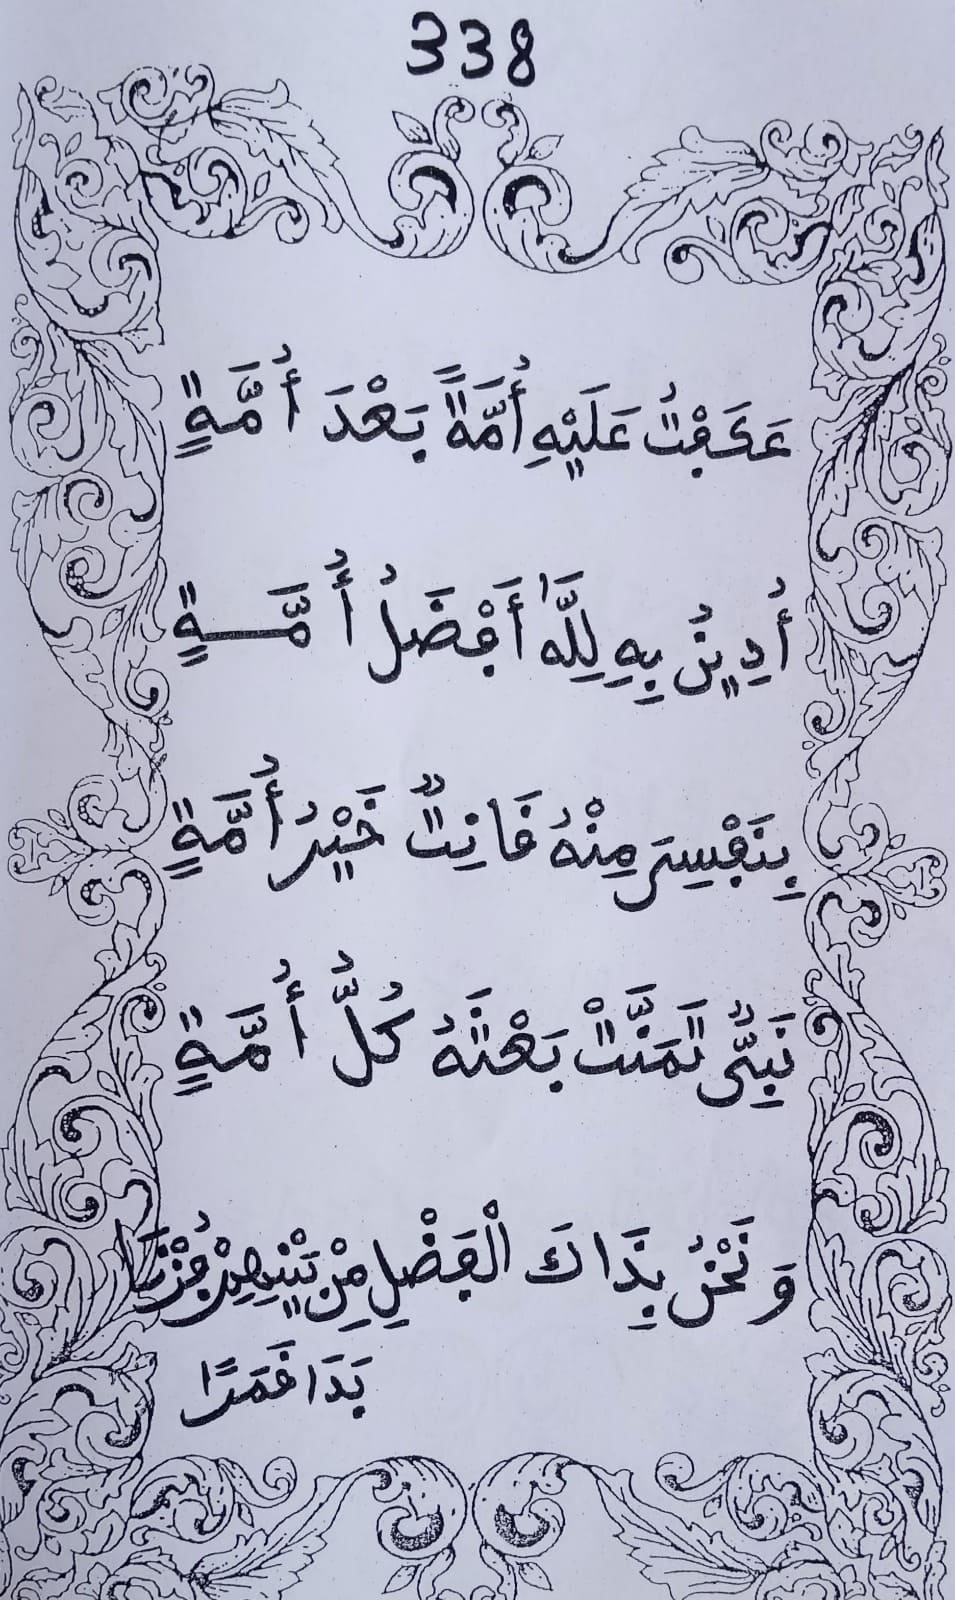 338
عَكَفْتُ عَلَيْهِ أُمَّةً بَعْدَ أُمَّةٍ
أُدِينُ بِهِ لِلَّهِ أَفْضَلُ أُمَّةٍ
بِنَفْسِيَ مِنْهُ قَانِتٌ خَيْرُ أُمَّةٍ
نَبِيٌّ تَمَنَّتْ بَعْثَهُ كُلُّ أُمَّةٍ
وَنَحْنُ بِذَاكَ الْفَضْلِ مِنْ بَيْنِهِمْ فُزْنَا
بَدَا قَمَرًا